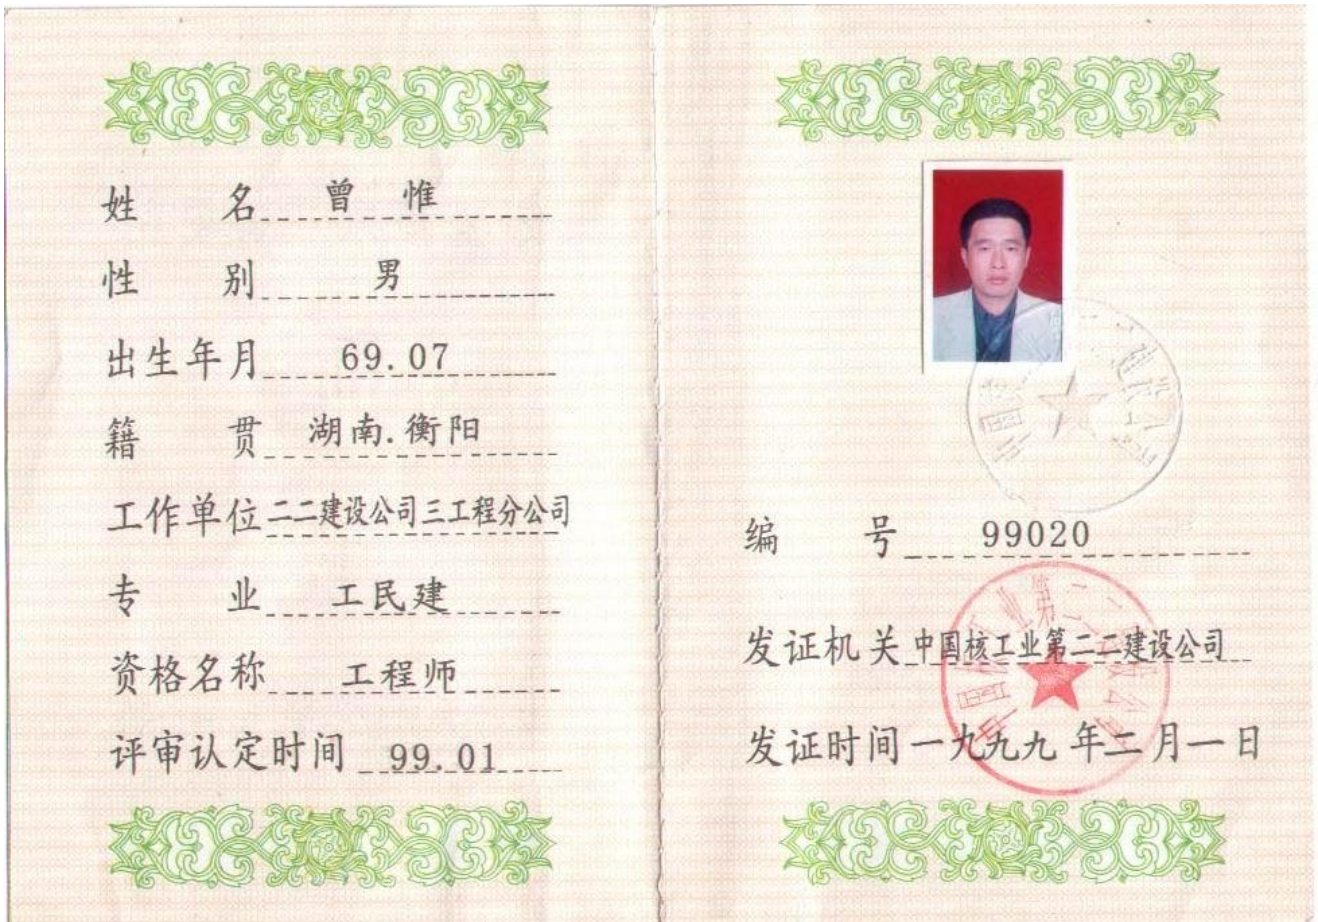 姓 名 曾 惟
性 别 男
出生年月 69.07
籍 贯 湖南.衡阳
工作单位 二二建设公司三工程分公司
专 业 工民建
资格名称 工程师
评审认定时间 99.01
编 号 99020
发证机关 中国核工业第二二建设公司
发证时间 一九九九 年二月一日
中国核工业第二二建设公司